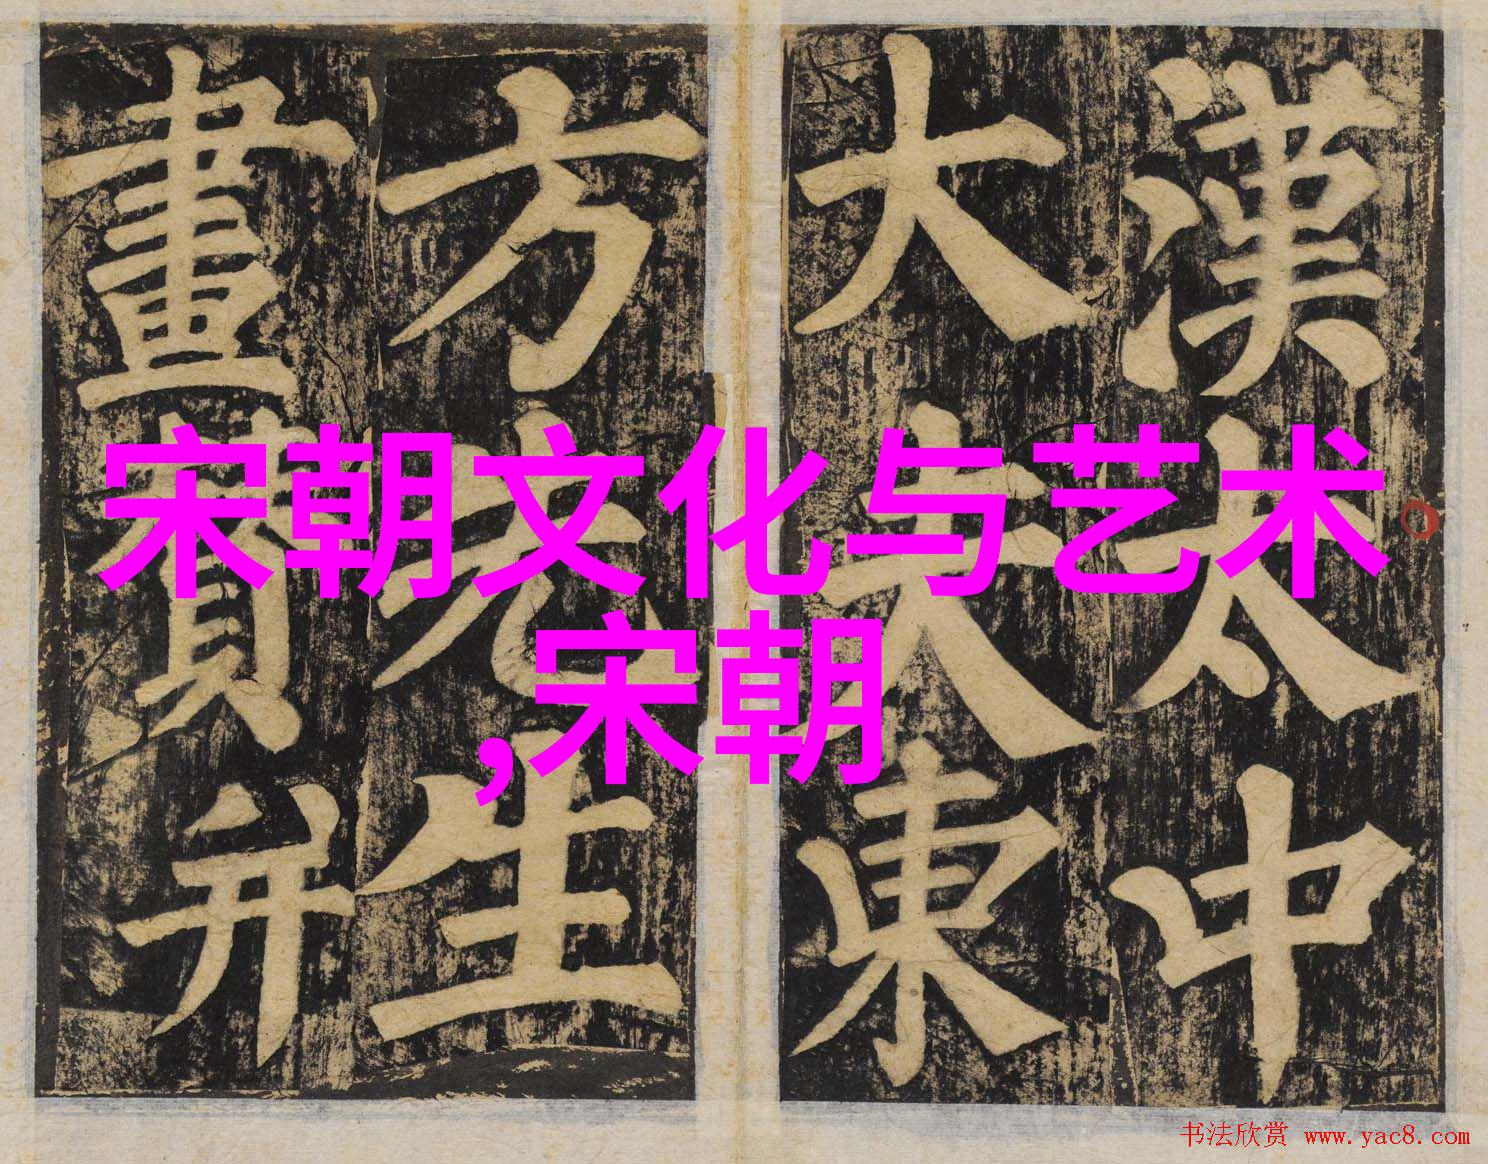 漢太中
大夫東
方先生
畫贊并
宋朝文化与艺术
,宋朝
书法欣赏 www.yac8.com